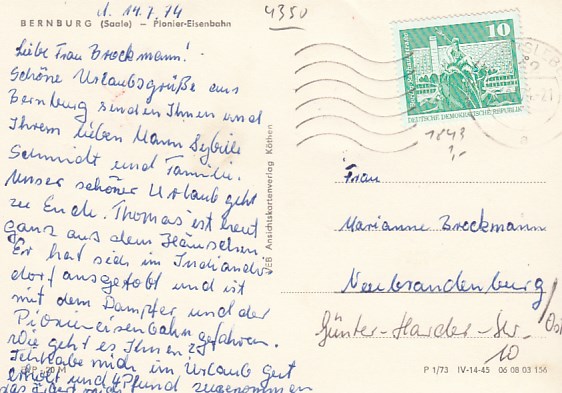 d. 14.7.74
4350
BERNBURG (Saale) – Pionier-Eisenbahn
Liebe Frau Brockmann!
Schöne Urlaubsgrüße aus
Bernburg senden Ihnen und
Ihrem lieben Mann Sybille
Schmidt und Familie.
Unser schöner Urlaub geht
zu Ende. Thomas ist heut
ganz aus dem Häuschen.
Er hat sich im Indianer-
dorf ausgetobt und ist
mit dem Dampfer und der
Pioniereisenbahn gefahren.
Wie geht es Ihnen?
Ich habe mich im Urlaub gut
erholt und 4 Pfund zugenommen
das
VEB Ansichtskartenverlag Köthen
10
DEUTSCHE DEMOKRATISCHE REPUBLIK
1843
Frau
Marianne Brockmann
Neubrandenburg
Günter-Harder-Str.
10
20 M
P 1/73 IV-14-45 06 08 03 156